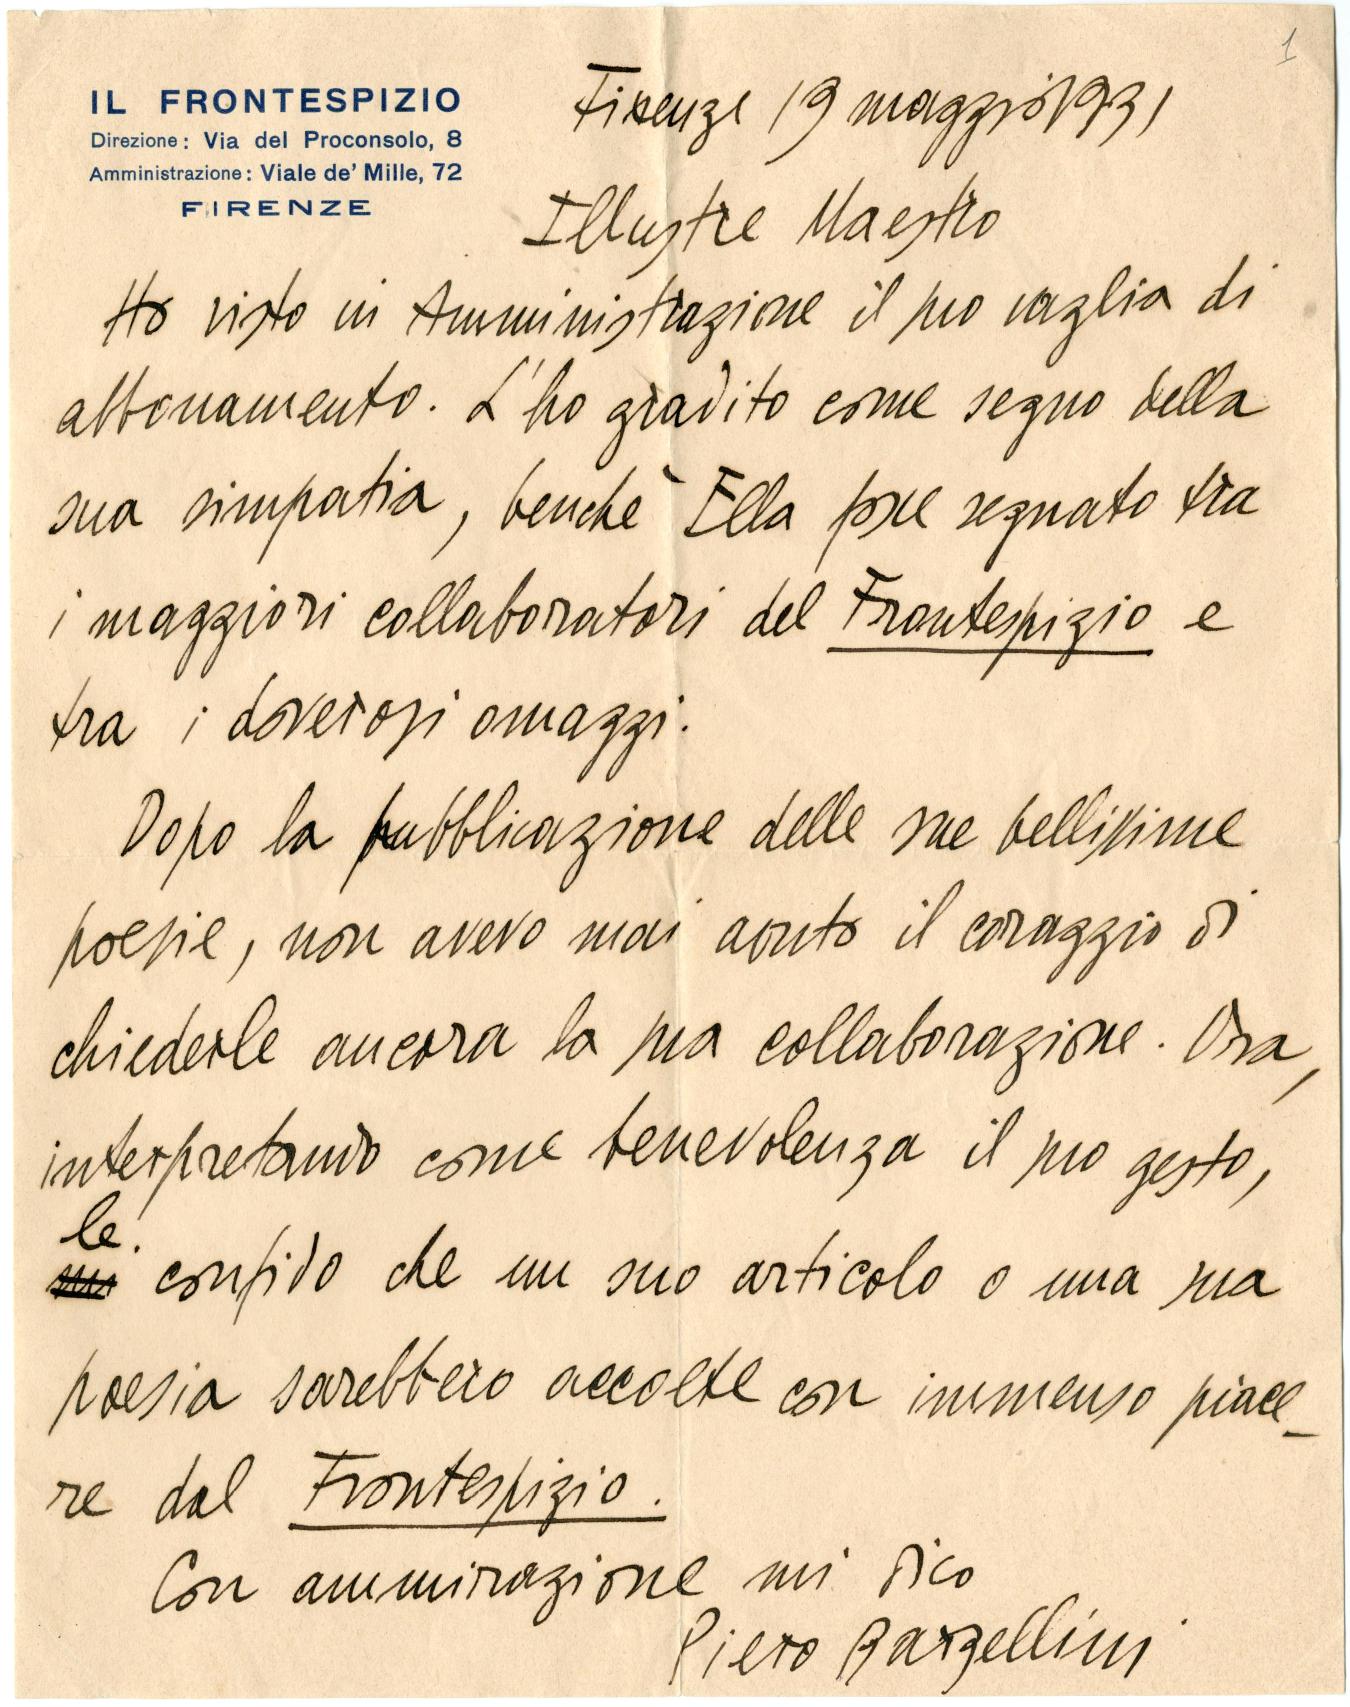 1
IL FRONTESPIZIO
Direzione: Via del Proconsolo, 8
Amministrazione: Viale de' Mille, 72
FIRENZE
Firenze 19 maggio 1931
Illustre Maestro
Ho visto in Amministrazione il suo vaglia di
abbonamento. L'ho gradito come segno della
sua simpatia, benchè Ella fosse segnato tra
i maggiori collaboratori del Frontespizio e
tra i doverosi omaggi.
Dopo la pubblicazione delle sue bellissime
poesie, non avevo mai avuto il coraggio di
chiederle ancora la sua collaborazione. Ora,
interpretando come benevolenza il suo gesto,
le
confido che un suo articolo o una sua
poesia sarebbero accolte con immenso piace_
re dal Frontespizio.
Con ammirazione mi dico
Piero Bargellini